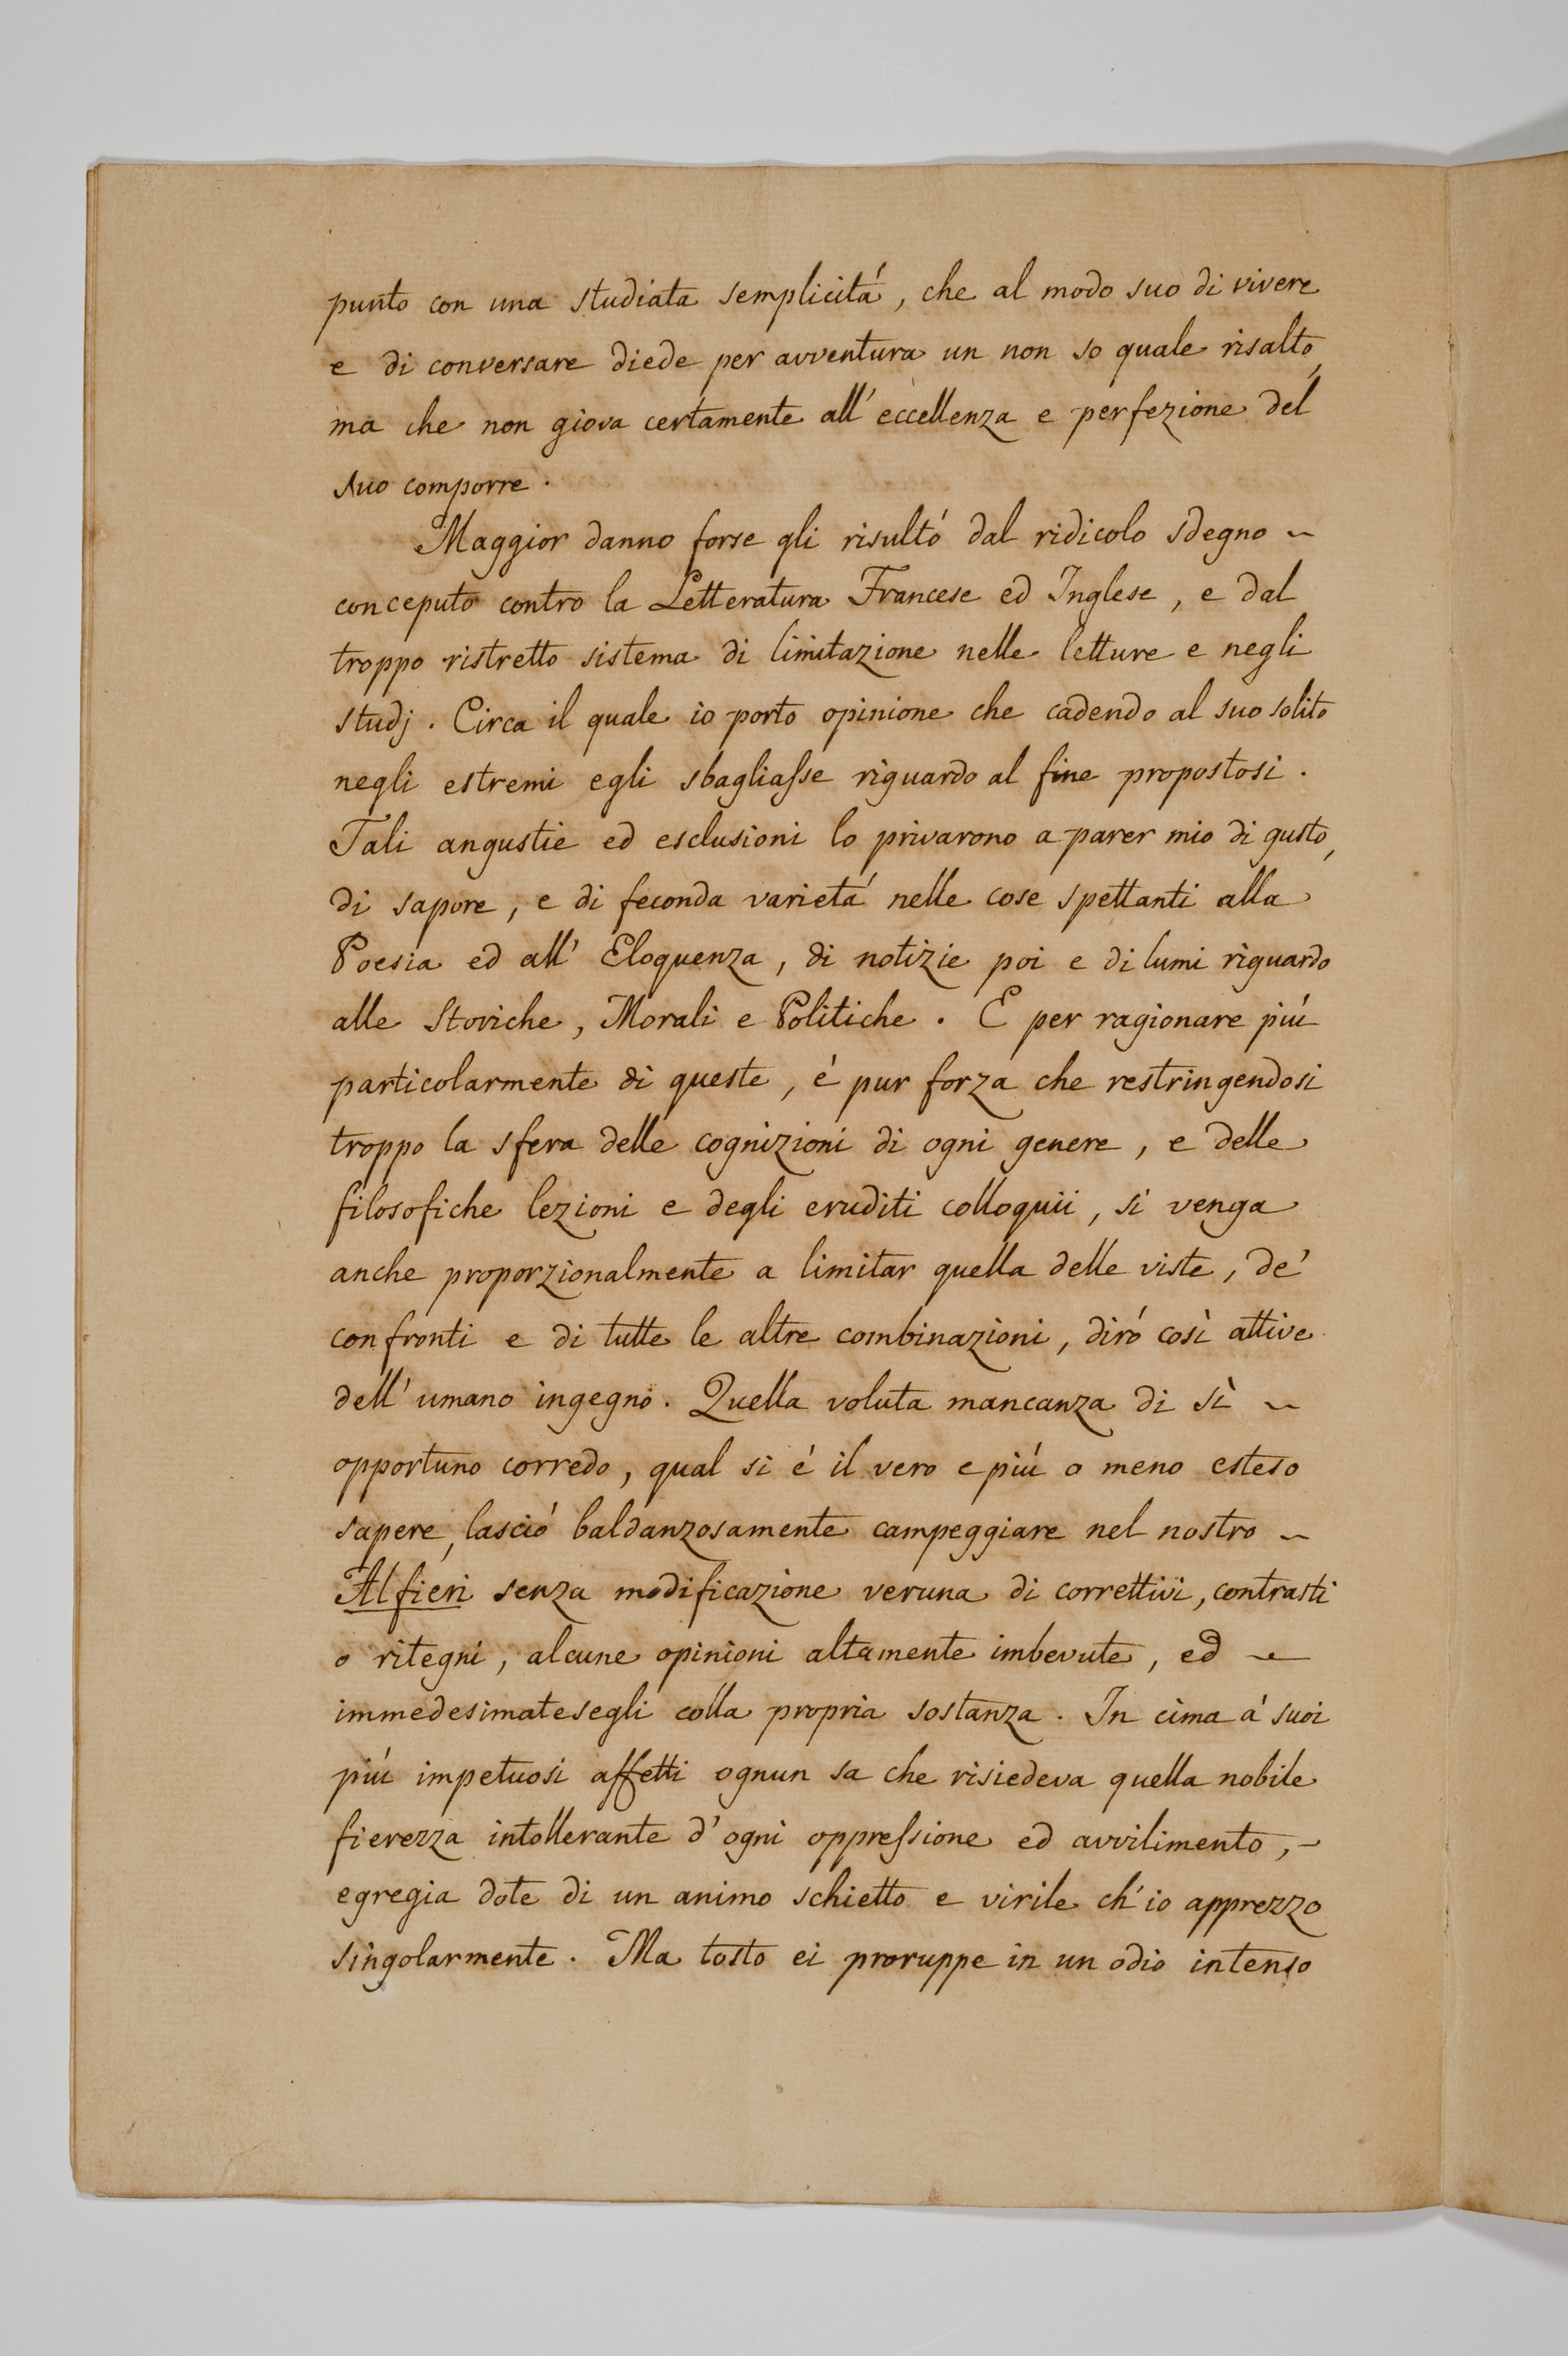 punto con una studiata semplicitá, che al modo suo di vivere
e di conversare diede per avventura un non so quale risalto,
ma che non giova certamente all' eccellenza e perfezione del
suo comporre.
Maggior danno forse gli risultó dal ridicolo sdegno ~
conceputo contro la Letteratura Francese ed Inglese, e dal
troppo ristretto sistema di limitazione nelle letture e negli
studj. Circa il quale io porto opinione che cadendo al suo solito
negli estremi egli sbagliaſse riguardo al fine propostosi.
Tali angustie ed esclusioni lo privarono a parer mio di gusto,
di sapore, e di feconda varietá nelle cose spettanti alla
Poesia ed all' Eloquenza, di notizie poi e di lumi riguardo
alle Storiche, Morali e Politiche. E per ragionare piú
particolarmente di queste, é pur forza che restringendosi
troppo la sfera delle cognizioni di ogni genere, e delle
filosofiche lezioni e degli eruditi colloquii, si venga
anche proporzionalmente a limitar quella delle viste, de'
confronti e di tutte le altre combinazioni, diró così attive
dell' umano ingegno. Quella voluta mancanza di sì ~
opportuno corredo, qual si é il vero e piú o meno esteso
sapere, lasció baldanzosamente campeggiare nel nostro ~
Alfieri senza modificazione veruna di correttivi, contrasti
o ritegni, alcune opinioni altamente imbevute, ed ~
immedesimatesegli colla propria sostanza. In cima a' suoi
piú impetuosi affetti ognun sa che risiedeva quella nobile
fierezza intollerante d' ogni oppreſsione ed avvilimento, ~
egregia dote di un animo schietto e virile ch' io apprezzo
singolarmente. Ma tosto ei proruppe in un odio intenso